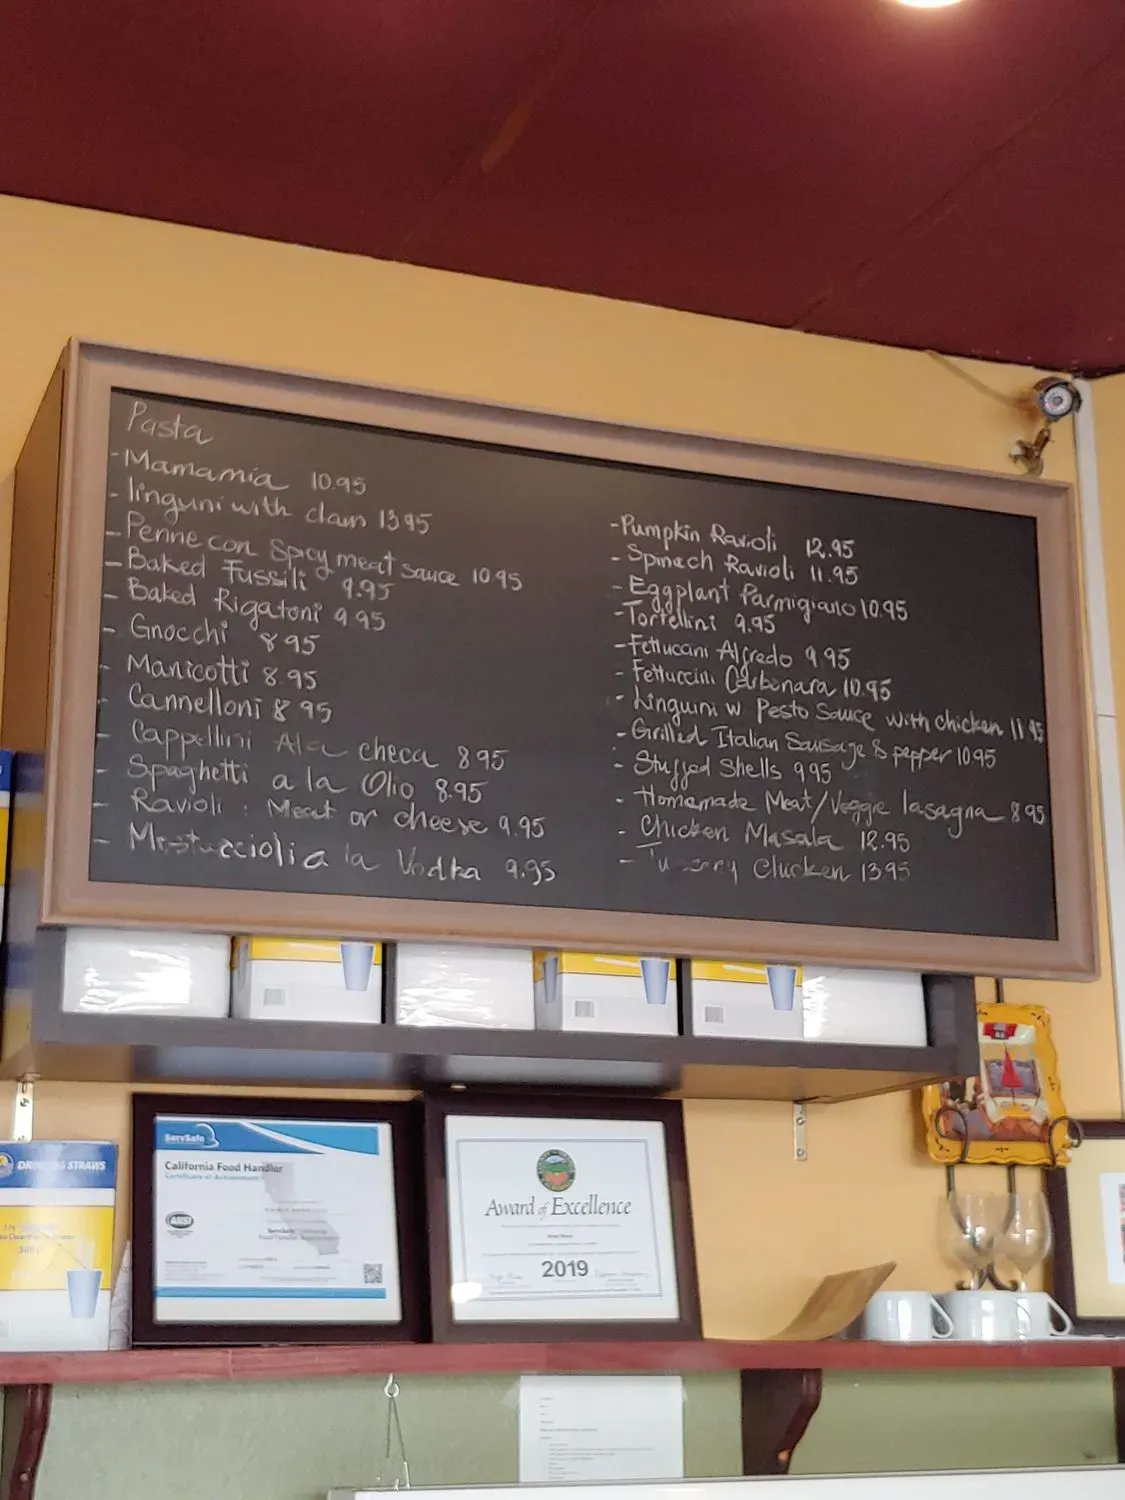 Pasta
- Mamamia 10.95
- linguni with clam 13 95
- Penne con Spicy meat sauce 10.95
- Baked Fussili 9.95
- Baked Rigatoni 9 95
- Gnocchi 8 95
- Manicotti 8.95
- Cannelloni 8 95
- Cappellini Ala checa 8 95
- Spaghetti a la Olio 8.95
- Ravioli : Meat or cheese 9.95
- Mostaccioli a la Vodka 9.95
- Pumpkin Ravioli 12.95
- Spinach Ravioli 11.95
- Eggplant Parmigiano 10.95
- Tortellini 9.95
- Fettucani Alfredo 9 95
- Fettuccini Carbonara 10.95
- Linguini w Pesto Sauce with chicken 11 95
- Grilled Italian Sausage & pepper 10 95
- Stuffed Shells 9 95
- Homemade Meat/Veggie lasagna 8 95
- Chicken Masala 12.95
- Chicken 13.95
ServSafe
California Food Handler
Certificate of Achievement
ANSI
Award of Excellence
2019
DRINKING STRAWS